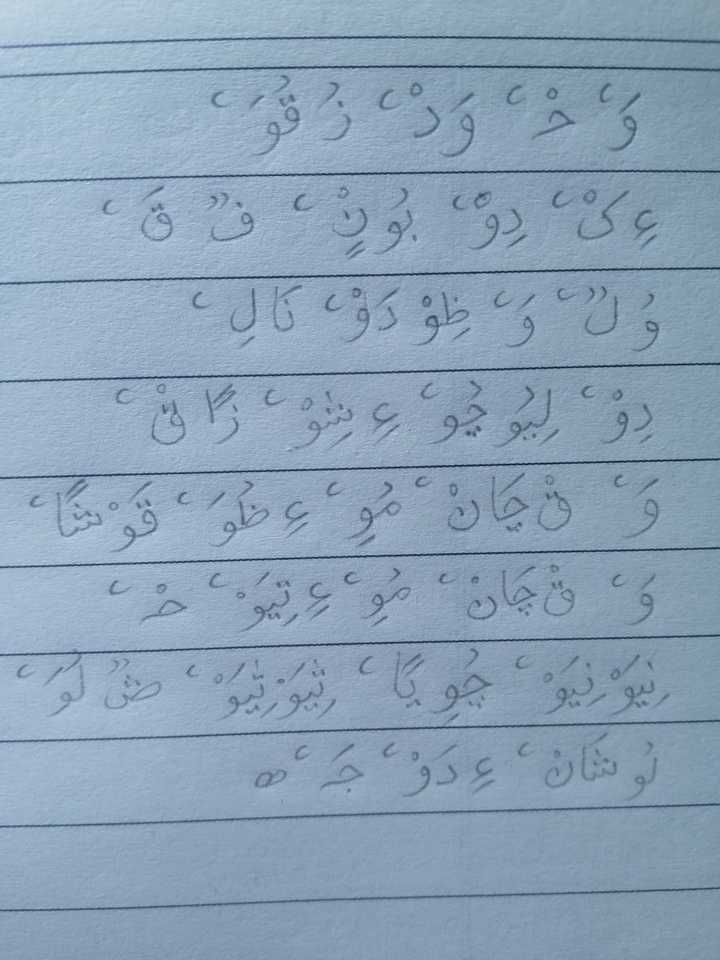 وَ‘ حْ‘ وَدْ‘ زُ قُوَ‘
ءِ کَْ‘ دِوْ‘ بُو نٍْ‘ فٌ قَ‘
وُ لٌ‘ وَ‘ ظِوْ دَوْ‘ نَالِ‘
دِوْ‘ لِيُو چُو‘ ءِ شِوْ‘ زًا قْ‘
وَ‘ قْ چَانْ‘ مُوِ‘ ءِ ظُوَ‘ قَوْ شًا‘
وَ‘ قْ چَانْ‘ مُوِ‘ ءِ تِيَوْ‘ حْ‘
نِيَوْ نِيَوْ‘ چُوِ يًا‘ ثِيَوْ ثِيَوْ‘ ضٌ لُوَ‘
لُو شَانْ‘ ءِ دَوْ‘ جَ‘ ه